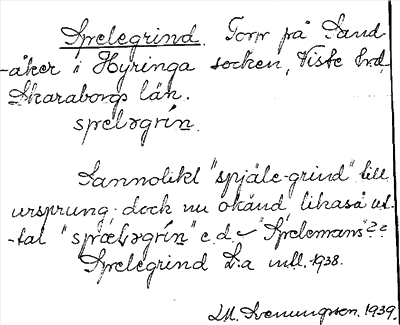 Sprelegrind. Torp på Sand
-åker i Hyringa socken, Viste hrd,
Skaraborgs län.
sprelǝgrín.
Sannolikt "spjäle-grind" till
ursprung, dock nu okänd likaså ut-
-tal "sprælǝgrín" e.d. "Sprelemans"?
Sprelegrind L:a 1938.
1939.